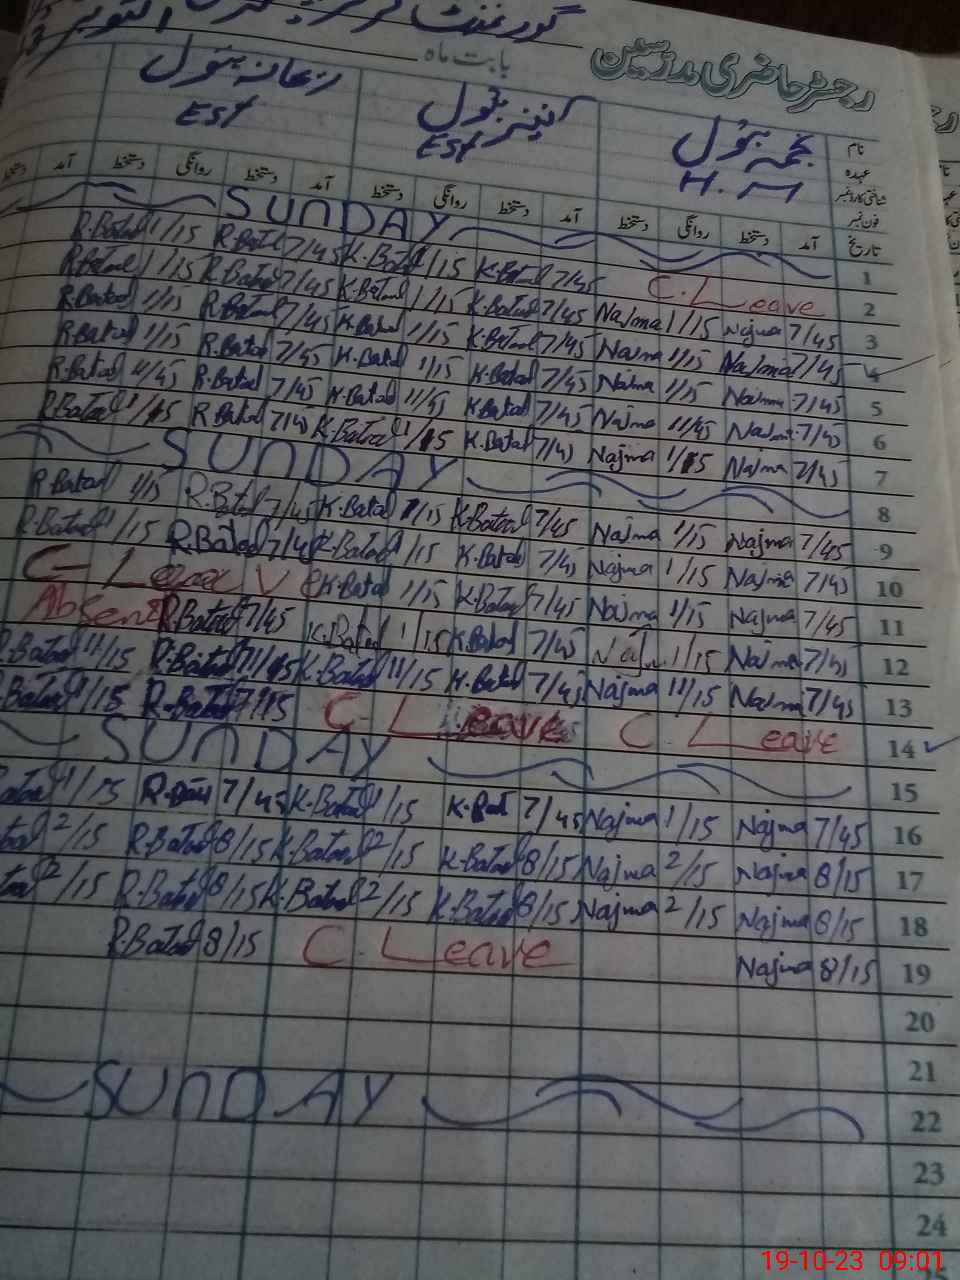 گورنمنٹ
رجسٹر حاضری مدرسین بابت ماہ
نام نجمہ بتول کنیز بتول ریحانہ بتول
عہدہ H.M Est Est
شناختی کارڈ نمبر
فون نمبر
تاریخ آمد دستخط روانگی دستخط آمد دستخط روانگی دستخط آمد دستخط روانگی دستخط آمد دستخط
SUNDAY 1
R.Batool 1/15 R.Batol 7/45 K.Batol 1/15 K.Batool 7/45 C.Leave 2
R.Batool 1/15 R.Batool 7/45 K.Batool 1/15 K.Batool 7/45 Najma 1/15 Najma 7/45 3
R.Batool 1/15 R.Batool 7/45 K.Batol 1/15 K.Batool 7/45 Najma 1/15 Najma 7/45 4
R.Batool 1/15 R.Batol 7/45 K.Batol 1/15 K.Batol 7/45 Najma 1/15 Najma 7/45 5
R.Batol 11/45 R.Batool 7/45 K.Batol 11/45 K.Batol 7/45 Najma 11/45 Najma 7/45 6
R.Batool 1/15 R.Batol 7/45 K.Batool 1/15 K.Batol 7/45 Najma 1/15 Najma 7/45 7
SUNDAY 8
R.Batol 1/15 R.Batol 7/45 K.Batol 1/15 K.Batool 7/45 Najma 1/15 Najma 7/45 9
R.Batool 1/15 R.Batool 7/45 K.Batool 1/15 K.Batol 7/45 Najma 1/15 Najma 7/45 10
C-Leave K.Batol 1/15 K.Batol 7/45 Najma 1/15 Najma 7/45 11
Absent R.Batol 7/45 K.Batol 1/15 K.Batol 7/45 1/15 Najma 7/45 12
Batool 11/15 R.Batool K.Batool 11/15 K.Batol 7/45 Najma 11/15 Najma 7/45 13
Batool 1/15 R.Batol 7/15 C-Leave C.Leave 14
SUNDAY 15
1/15 7/45 K.Batol 1/15 7/45 Najma 1/15 Najma 7/45 16
2/15 R.Batol 8/15 K.Batool 2/15 K.Batol 8/15 Najma 2/15 Najma 8/15 17
2/15 R.Batol 8/15 K.Batol 2/15 K.Batol 8/15 Najma 2/15 Najma 8/15 18
R.Batool 8/15 C.Leave Najma 8/15 19
20
21
SUNDAY 22
23
24
19-10-23 09:01